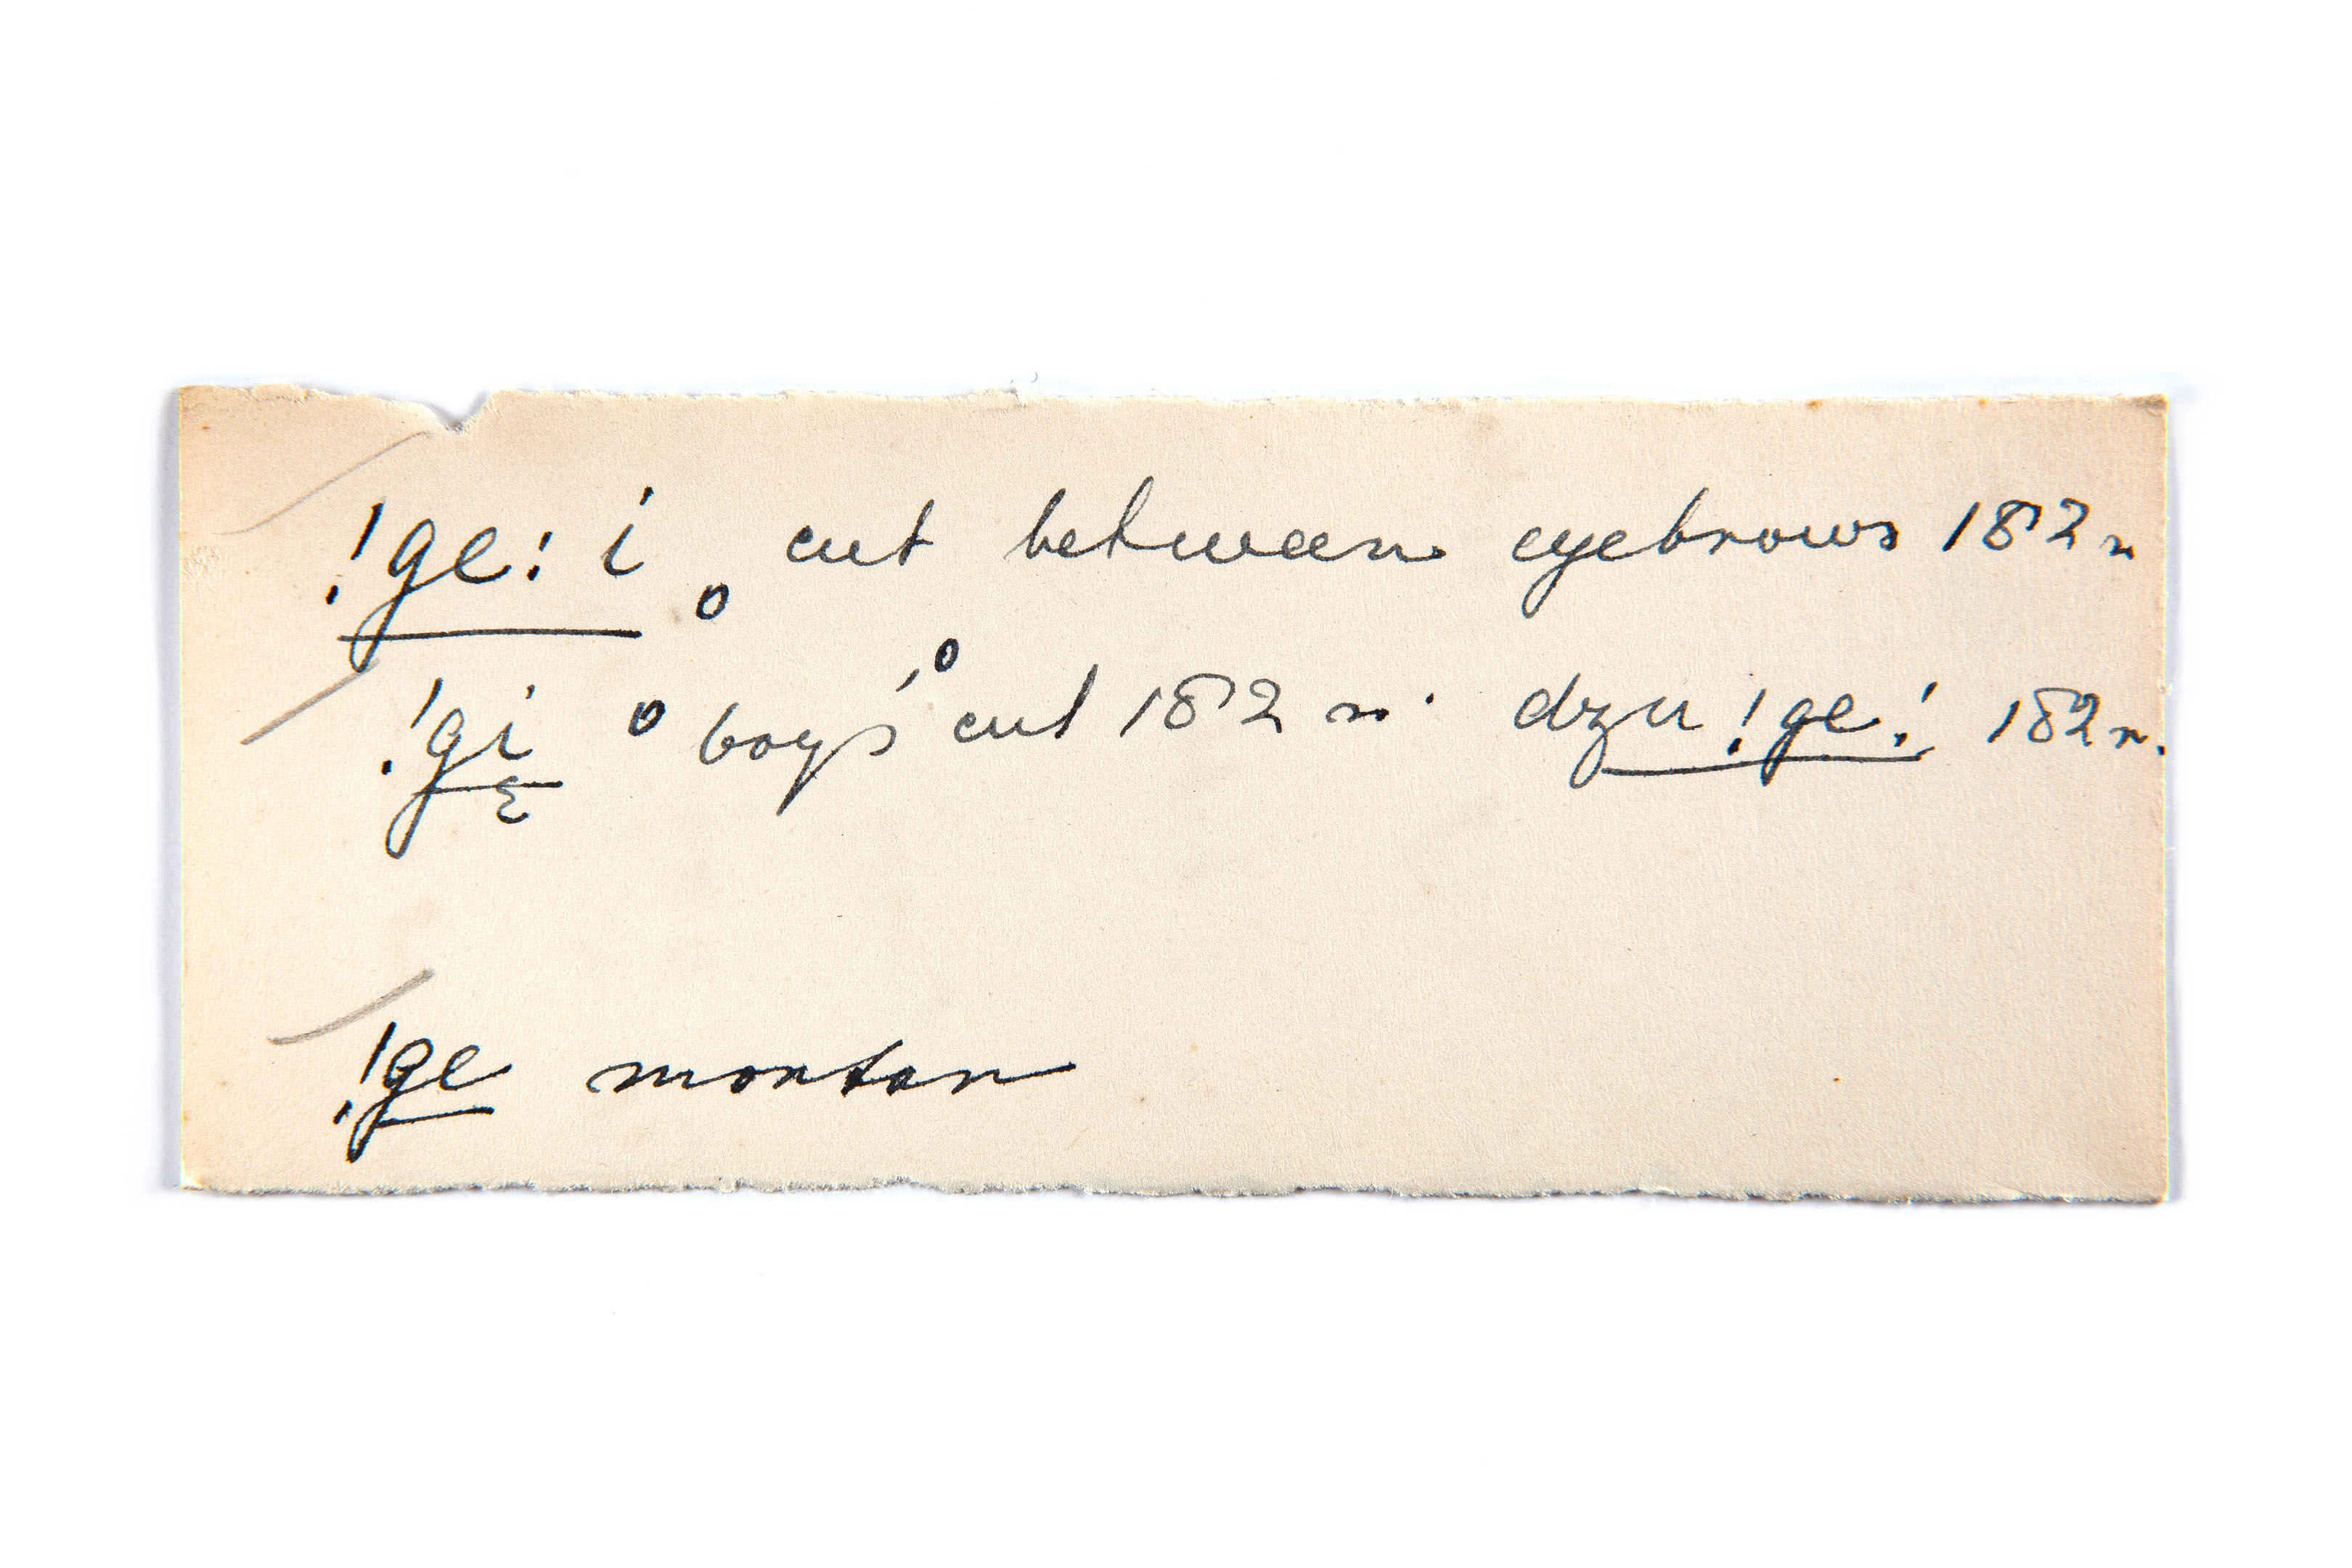 !ge: i o cut between eyebrows 182 n
!gi ɛ o boys' o cut 182 n. dzu !ge! 182 n.
!ge montan